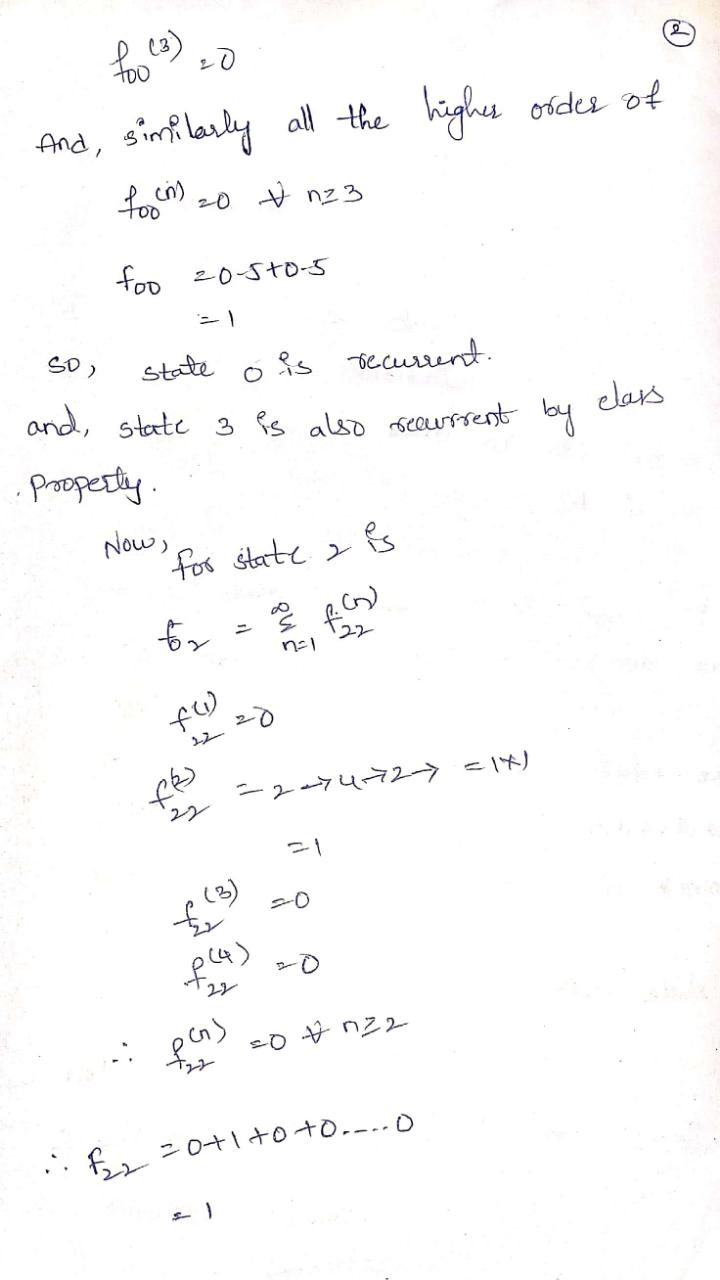 2
f₀₀⁽³⁾ = 0
And, similarly all the higher order of
f₀₀⁽ⁿ⁾ = 0 ∀ n ≥ 3
f₀₀ = 0.5 + 0.5
= 1
so, state 0 is recurrent.
and, state 3 is also recurrent by class
Property.
Now, for state 2 is
f₂₂ = Σ_{n=1}^{∞} f₂₂⁽ⁿ⁾
f₂₂⁽¹⁾ = 0
f₂₂⁽²⁾ = 2 → 4 → 2 → = 1*1
= 1
f₂₂⁽³⁾ = 0
f₂₂⁽⁴⁾ = 0
∴ f₂₂⁽ⁿ⁾ = 0 ∀ n ≥ 2
∴ f₂₂ = 0 + 1 + 0 + 0 ..... 0
= 1